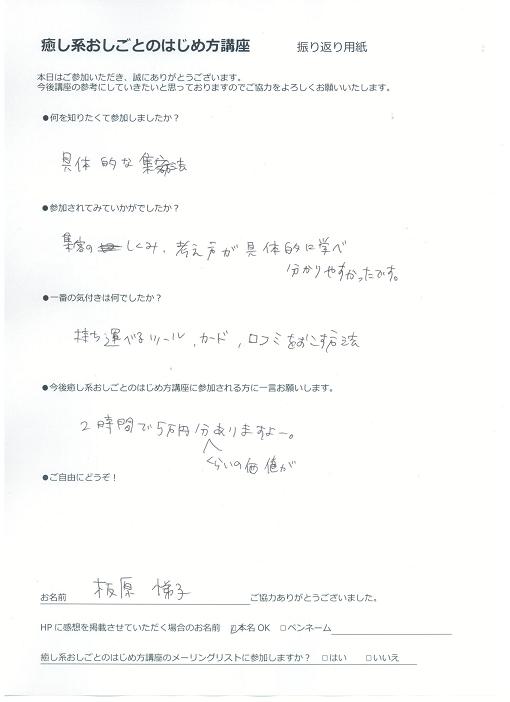 癒し系おしごとのはじめ方講座　振り返り用紙
本日はご参加いただき、誠にありがとうございます。
今後講座の参考にしていきたいと思っておりますのでご協力をよろしくお願いいたします。
●何を知りたくて参加しましたか？
具体的な集客法
●参加されてみていかがでしたか？
集客のしくみ、考え方が具体的に学べ
分かりやすかったです。
●一番の気付きは何でしたか？
持ち運べるツール、カード、口コミをおこす方法
●今後癒し系おしごとのはじめ方講座に参加される方に一言お願いします。
2時間で5万円分ありますよー。
くらいの価値が
●ご自由にどうぞ！
お名前　板原　悌子　ご協力ありがとうございました。
HPに感想を掲載させていただく場合のお名前　☑本名OK　□ペンネーム
癒し系おしごとのはじめ方講座のメーリングリストに参加しますか？　□はい　□いいえ